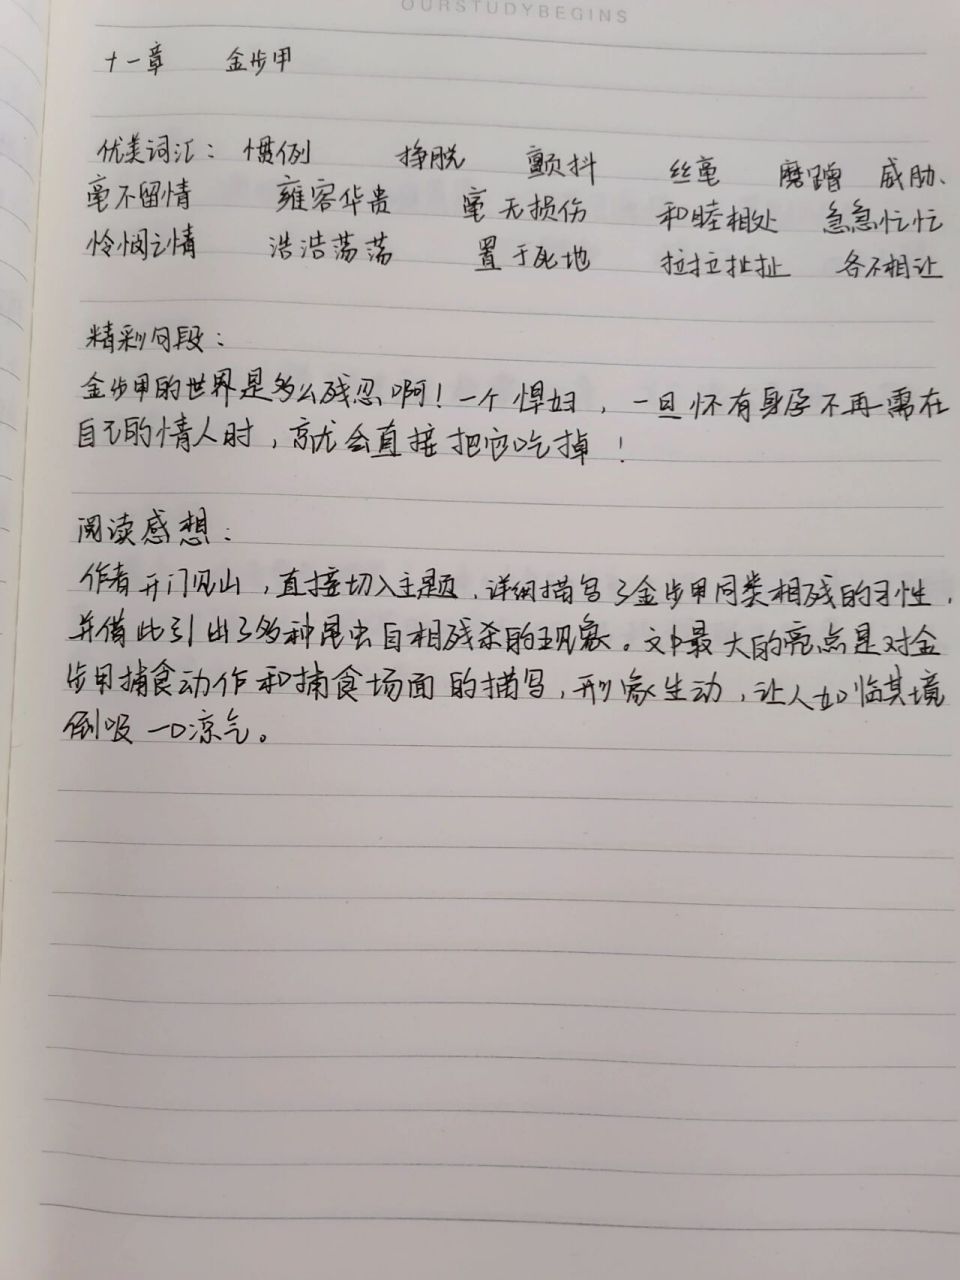 OURSTUDYBEGINS
十一章 金步甲
优美词汇： 惯例 挣脱 颤抖 丝毫 磨蹭 威胁、
毫不留情 雍容华贵 毫无损伤 和睦相处 急急忙忙
怜悯之情 浩浩荡荡 置于死地 拉拉扯扯 各不相让
精彩句段：
金步甲的世界是多么残忍啊！一个悍妇，一旦怀有身孕不再需在
自己的情人时，就会直接把它吃掉！
阅读感想：
作者开门见山，直接切入主题，详细描写了金步甲同类相残的习性，
并借此引出了多种昆虫自相残杀的现象。文中最大的亮点是对金
步甲捕食动作和捕食场面的描写，形象生动，让人如临其境
倒吸一口凉气。